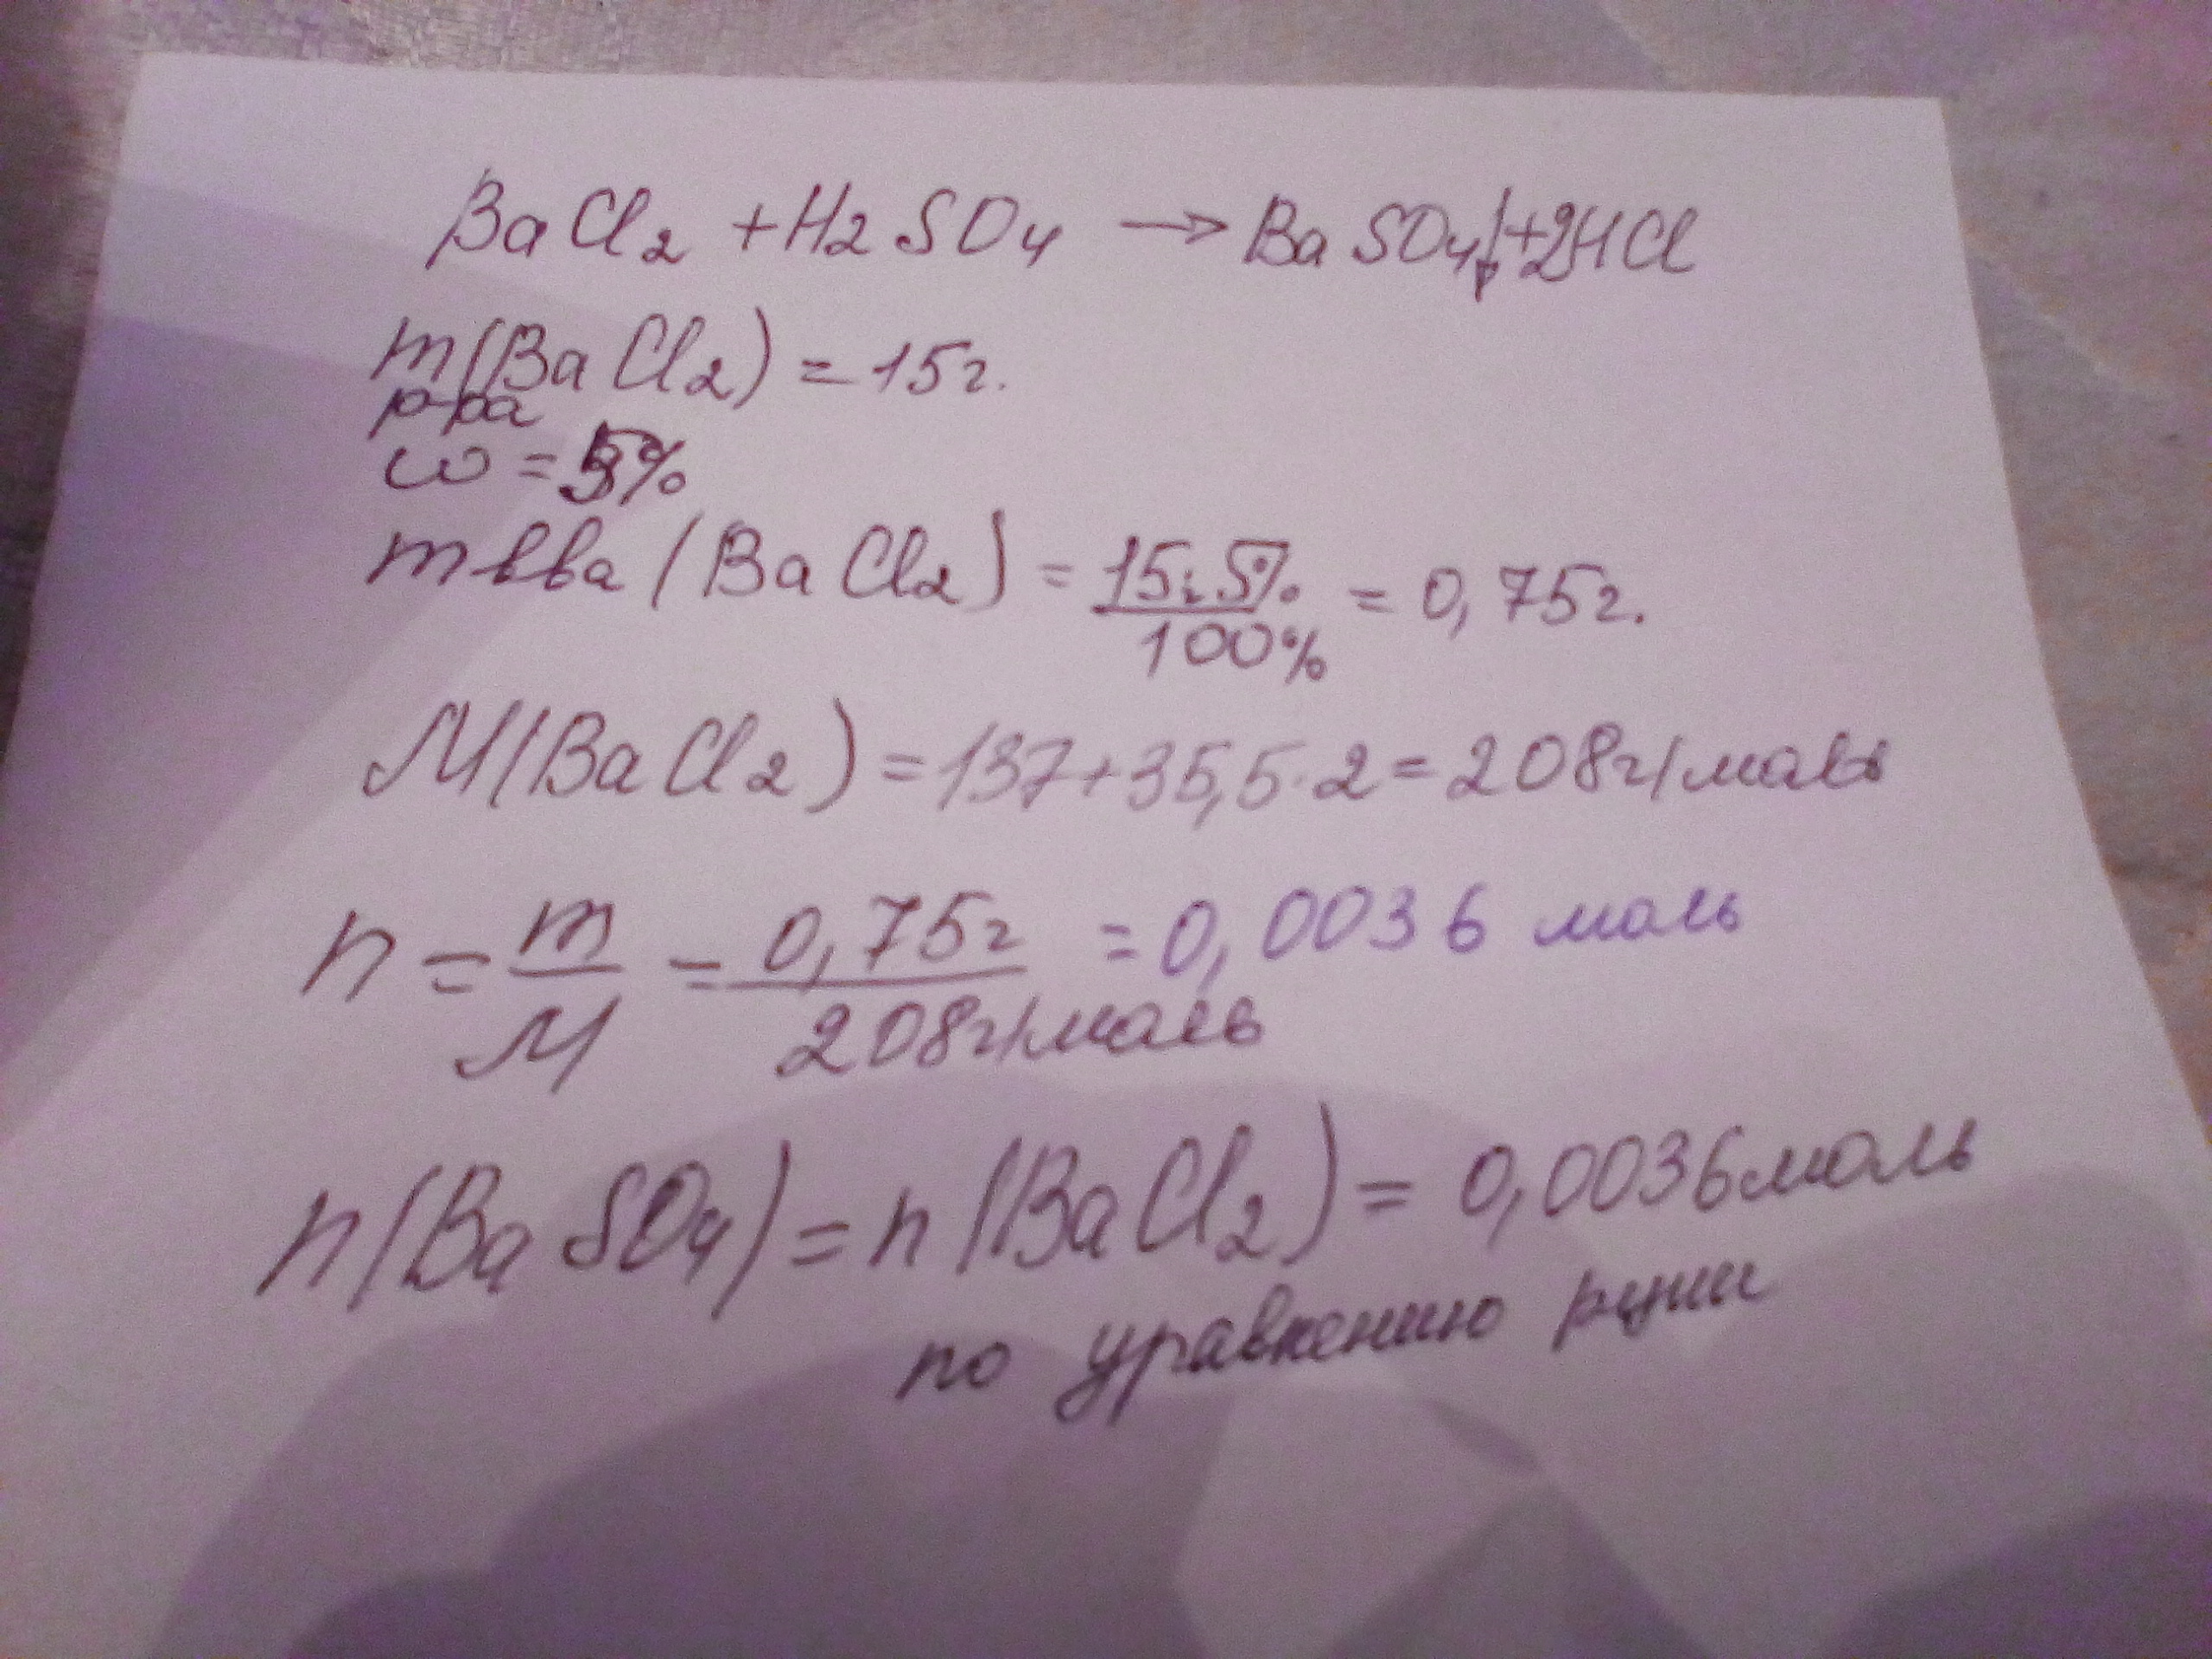 BaCl2 + H2SO4 → BaSO4↓+2HCl
m(BaCl2) = 15г.
р-ра
ω = 5%
m вва (BaCl2) = 15г·5% / 100% = 0,75г.
M(BaCl2) = 137+35,5·2 = 208г/моль
n = m/M = 0,75г / 208г/моль = 0,0036 моль
n(BaSO4) = n(BaCl2) = 0,0036моль
по уравнению рции